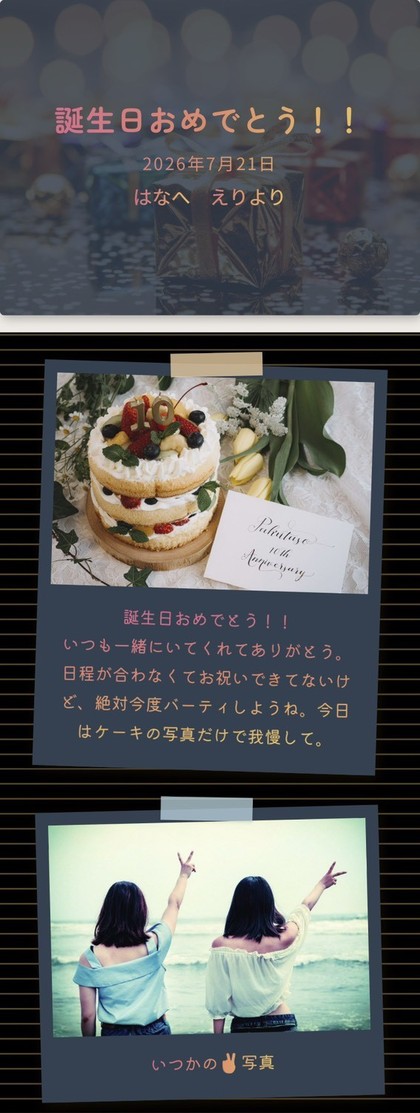 誕生日おめでとう！！
2026年7月21日
はなへ　えりより
10
10th
Anniversary
誕生日おめでとう！！
いつも一緒にいてくれてありがとう。
日程が合わなくてお祝いできてないけ
ど、絶対今度パーティしようね。今日
はケーキの写真だけで我慢して。
いつかの✌写真